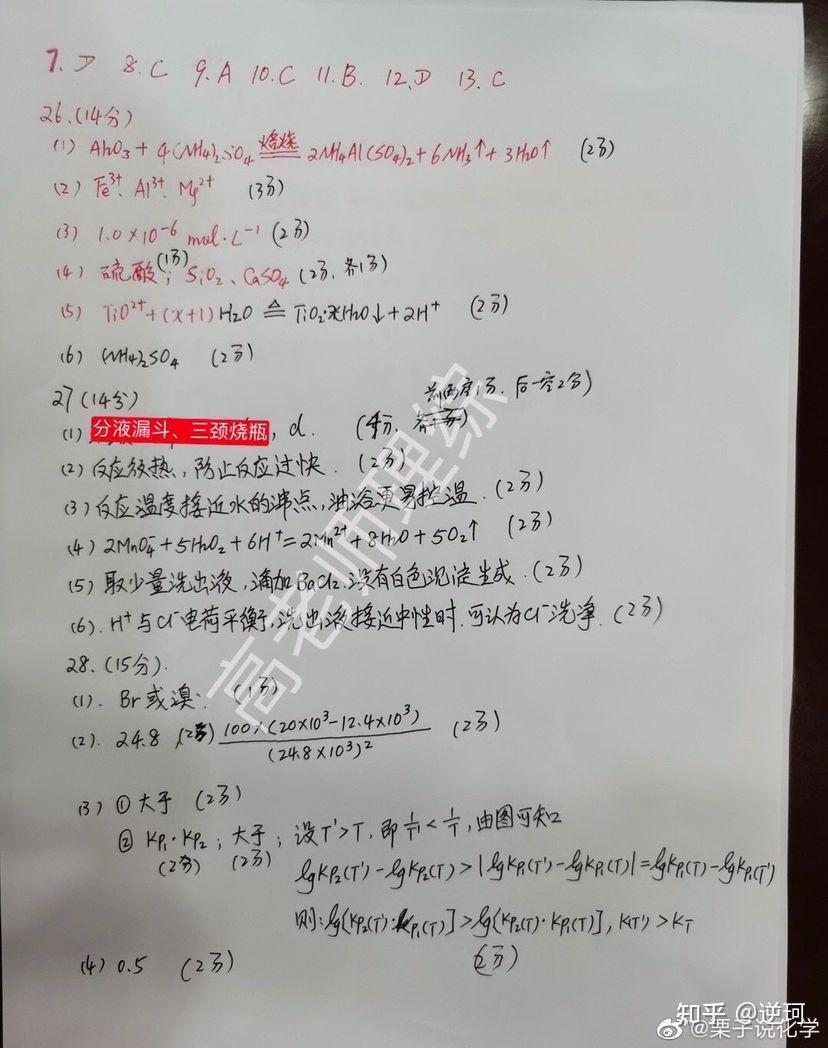 7. D 8. C 9. A 10. C 11. B. 12. D 13. C
26. (14分)
(1) Al₂O₃ + 4(NH₄)₂SO₄ 焙烧 2NH₄Al(SO₄)₂ + 6NH₃↑ + 3H₂O↑ (2分)
(2) Fe³⁺、Al³⁺、Mg²⁺ (3分)
(3) 1.0×10⁻⁶ mol·L⁻¹ (2分)
(4) 硫酸(1分); SiO₂、CaSO₄ (2分, 各1分)
(5) TiO²⁺ + (x+1)H₂O △ TiO₂·xH₂O↓ + 2H⁺ (2分)
(6) (NH₄)₂SO₄ (2分)
27 (14分)
前两空1分, 后一空2分)
(1) 分液漏斗、三颈烧瓶, d. (4分,
(2) 反应放热, 防止反应过快. (2分)
(3) 反应温度接近水的沸点, 油浴更易控温. (2分)
(4) 2MnO₄⁻ + 5H₂O₂ + 6H⁺ = 2Mn²⁺ + 8H₂O + 5O₂↑ (2分)
(5) 取少量洗出液, 滴加BaCl₂. 没有白色沉淀生成. (2分)
(6). H⁺与Cl⁻电荷平衡, 洗出液接近中性时. 可认为Cl⁻洗净. (2分)
28. (15分).
(1). Br或溴. (1分)
(2). 24.8 (2分) 100×(20×10³-12.4×10³) / (24.8×10³)² (2分)
(3) ① 大于 (2分)
② Kp₁·Kp₂; 大于; 设T'>T, 即 1/T' < 1/T, 由图可知
(2分) (2分) lgKp₂(T') - lgKp₂(T) > |lgKp₁(T') - lgKp₁(T)| = lgKp₁(T) - lgKp₁(T')
则: lg[Kp₂(T')·Kp₁(T)] > lg[Kp₂(T)·Kp₁(T)], K(T') > K_T
(4) 0.5 (2分) (2分)
高老师理综
知乎 @逆珂
@栗子说化学